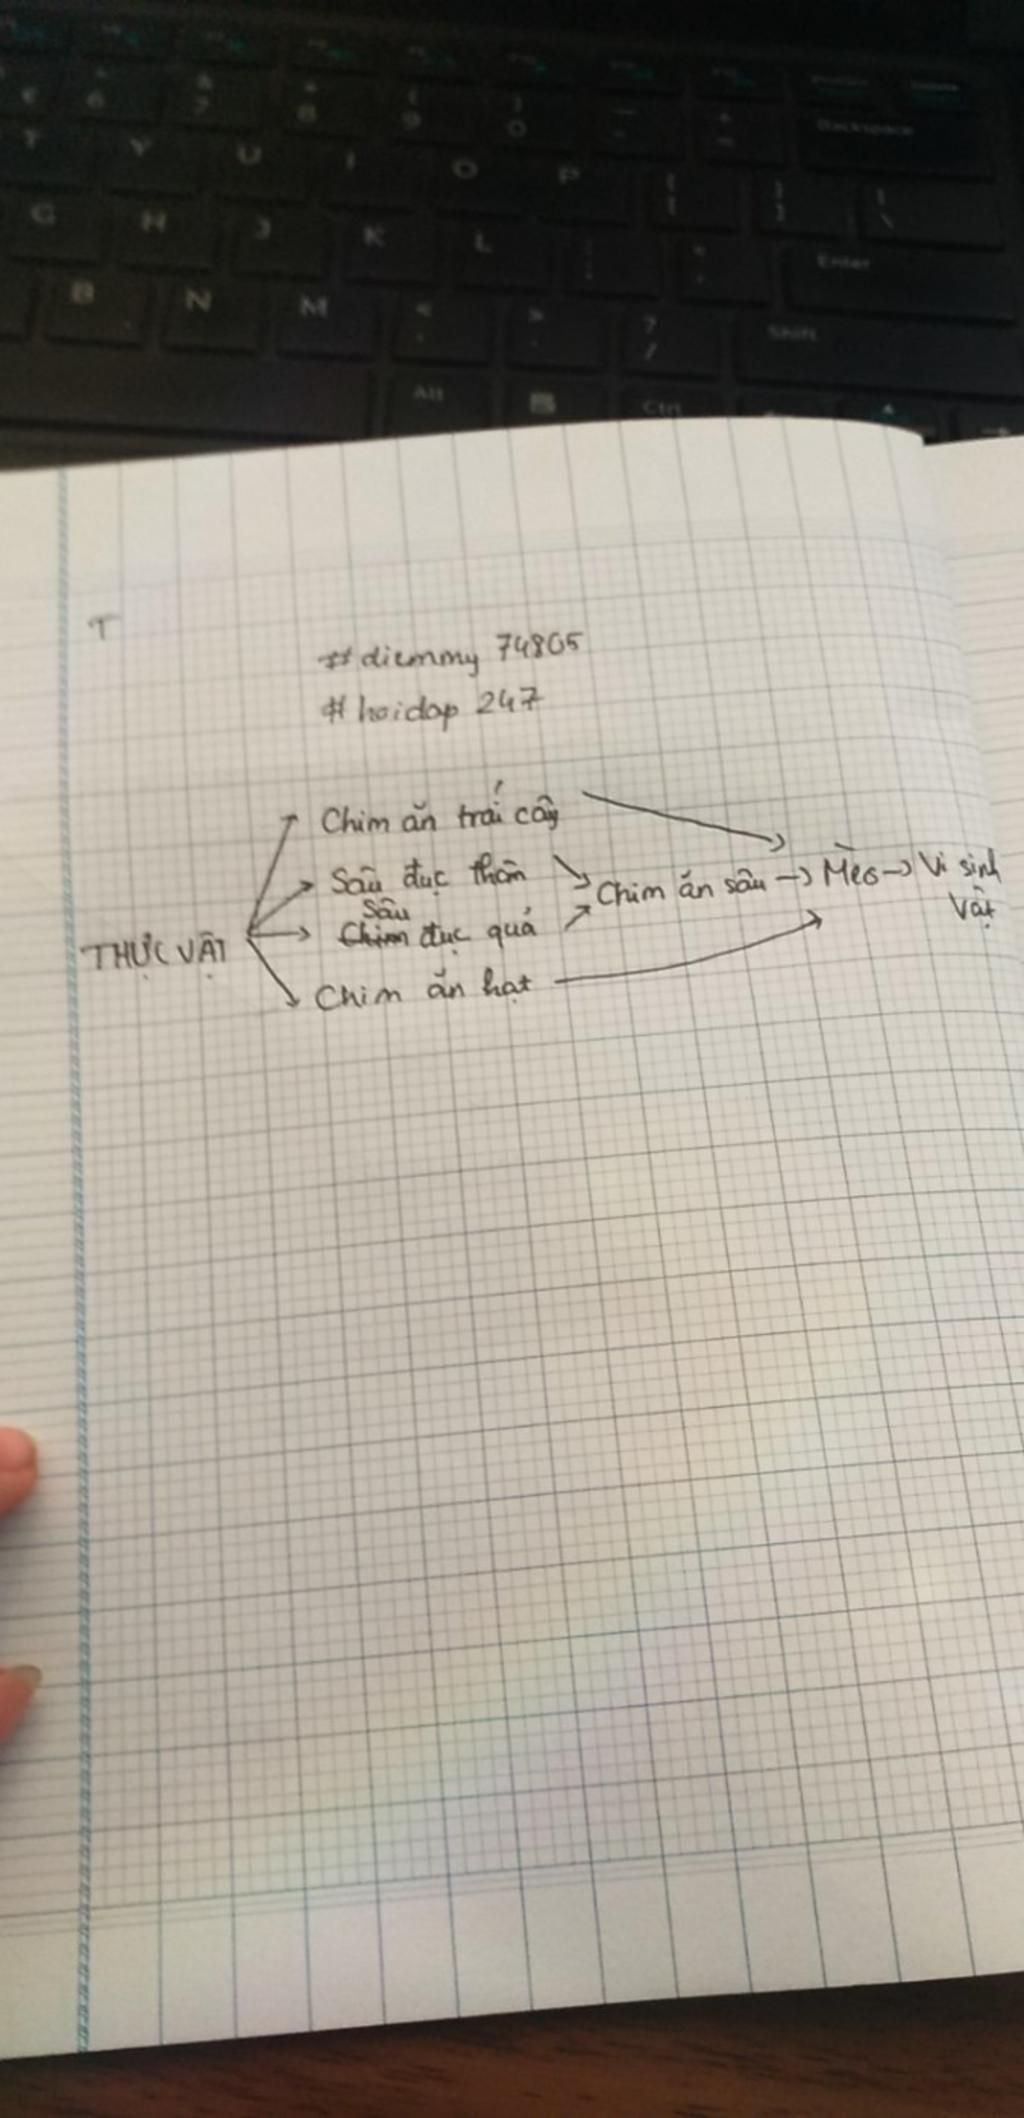 T
#diemmy 74805
#hoidap 247
Chim ăn trái cây
Sâu đục thân
Sâu
Chim đục quả
Chim ăn hạt
THỰC VẬT
Chim ăn sâu → Mèo → Vi sinh
vật
Backspace
T Y U I O P
G H J K L
Enter
B N M
Shift
Alt
Ctrl